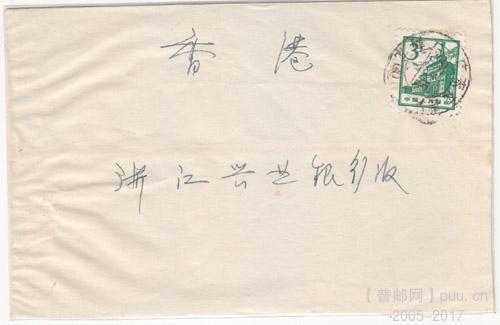 香 港
3
中国人民邮政
浙江兴业银行收
【普邮网】puu.cn
2005-2017